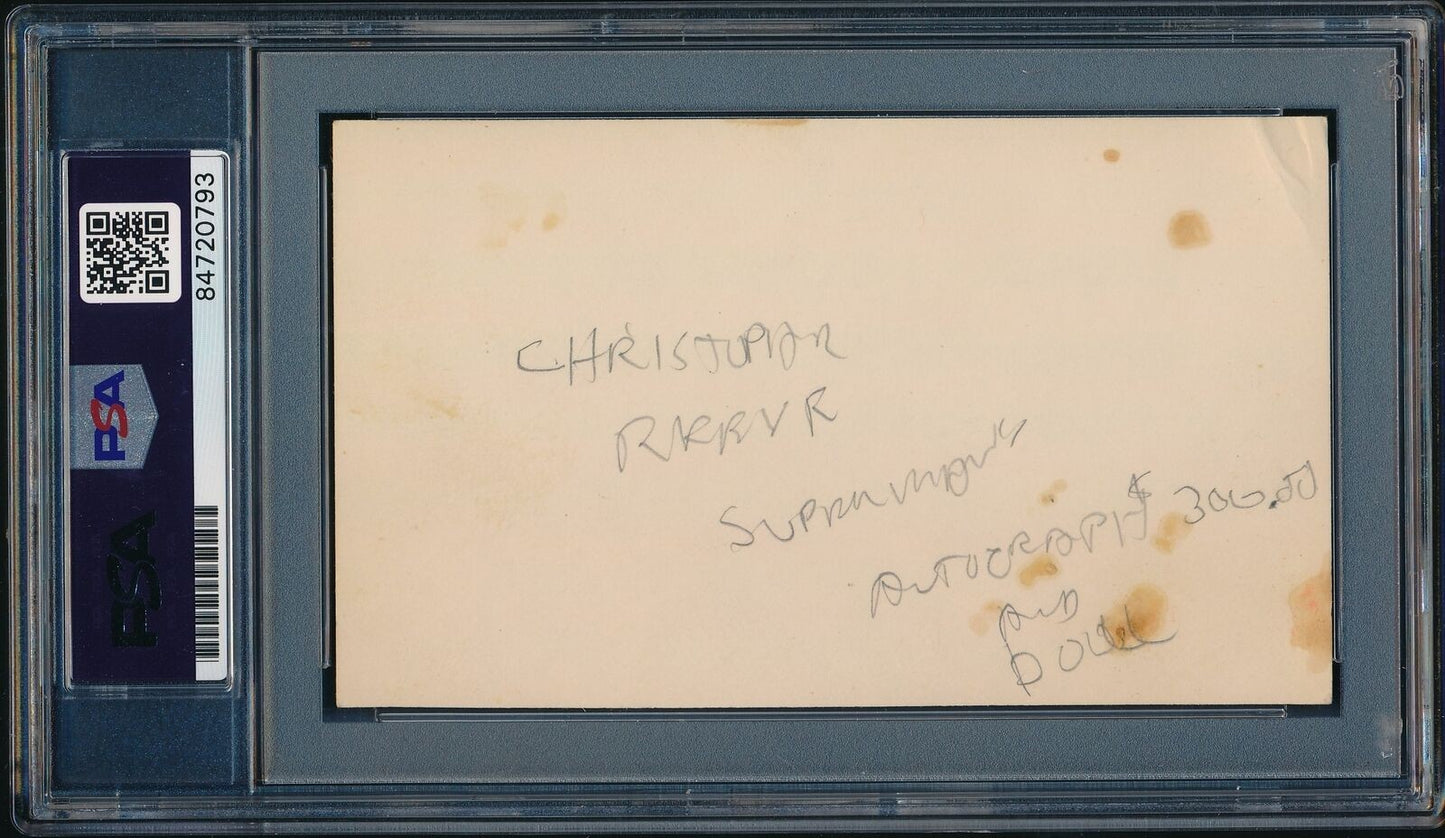 84720793
PSA
PSA
CHRISTOPHER
REEVE
SUPERMAN'S
AUTOGRAPH $ 300.00
AND
DOLL